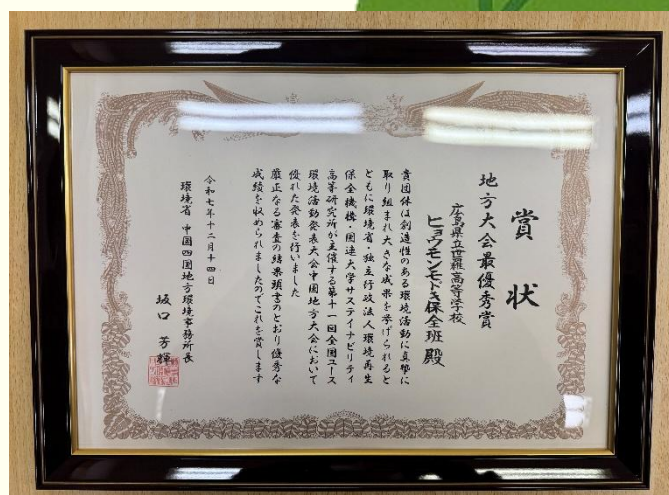 賞状
地方大会最優秀賞
広島県立世羅高等学校
ヒョウモンモドキ保全班 殿
貴団体は創造性のある環境活動に真摯に
取り組まれ大きな成果を挙げられると
ともに環境省・独立行政法人環境再生
保全機構・国連大学サステイナビリティ
高等研究所が主催する第十一回全国ユース
環境活動発表大会中国地方大会において
優れた発表を行いました
厳正なる審査の結果頭書のとおり優秀な
成績を収められましたのでこれを賞します
令和七年十二月十四日
環境省 中国四国地方環境事務所長
坂口 芳輝